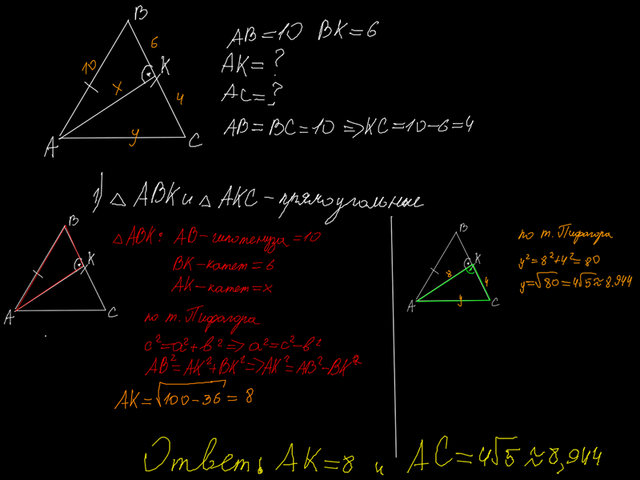 B
10
6
K
x
4
A
y
C
AB=10 BK=6
AK=?
AC=?
AB=BC=10 ⇒KC=10-6=4
1) △ ABK и △ AKC-прямоугольные
B
K
A
C
△ABK: AB-гипотенуза=10
BK-катет=6
AK-катет=x
по т. Пифагора
c²=a²+b²⇒a²=c²-b²
AB²=AK²+BK²⇒AK²=AB²-BK²
AK=√100-36=8
B
K
8
4
A
y
C
по т. Пифагора
y²=8²+4²=80
y=√80=4√5≈8.944
Ответ: AK=8 и AC=4√5≈8,944